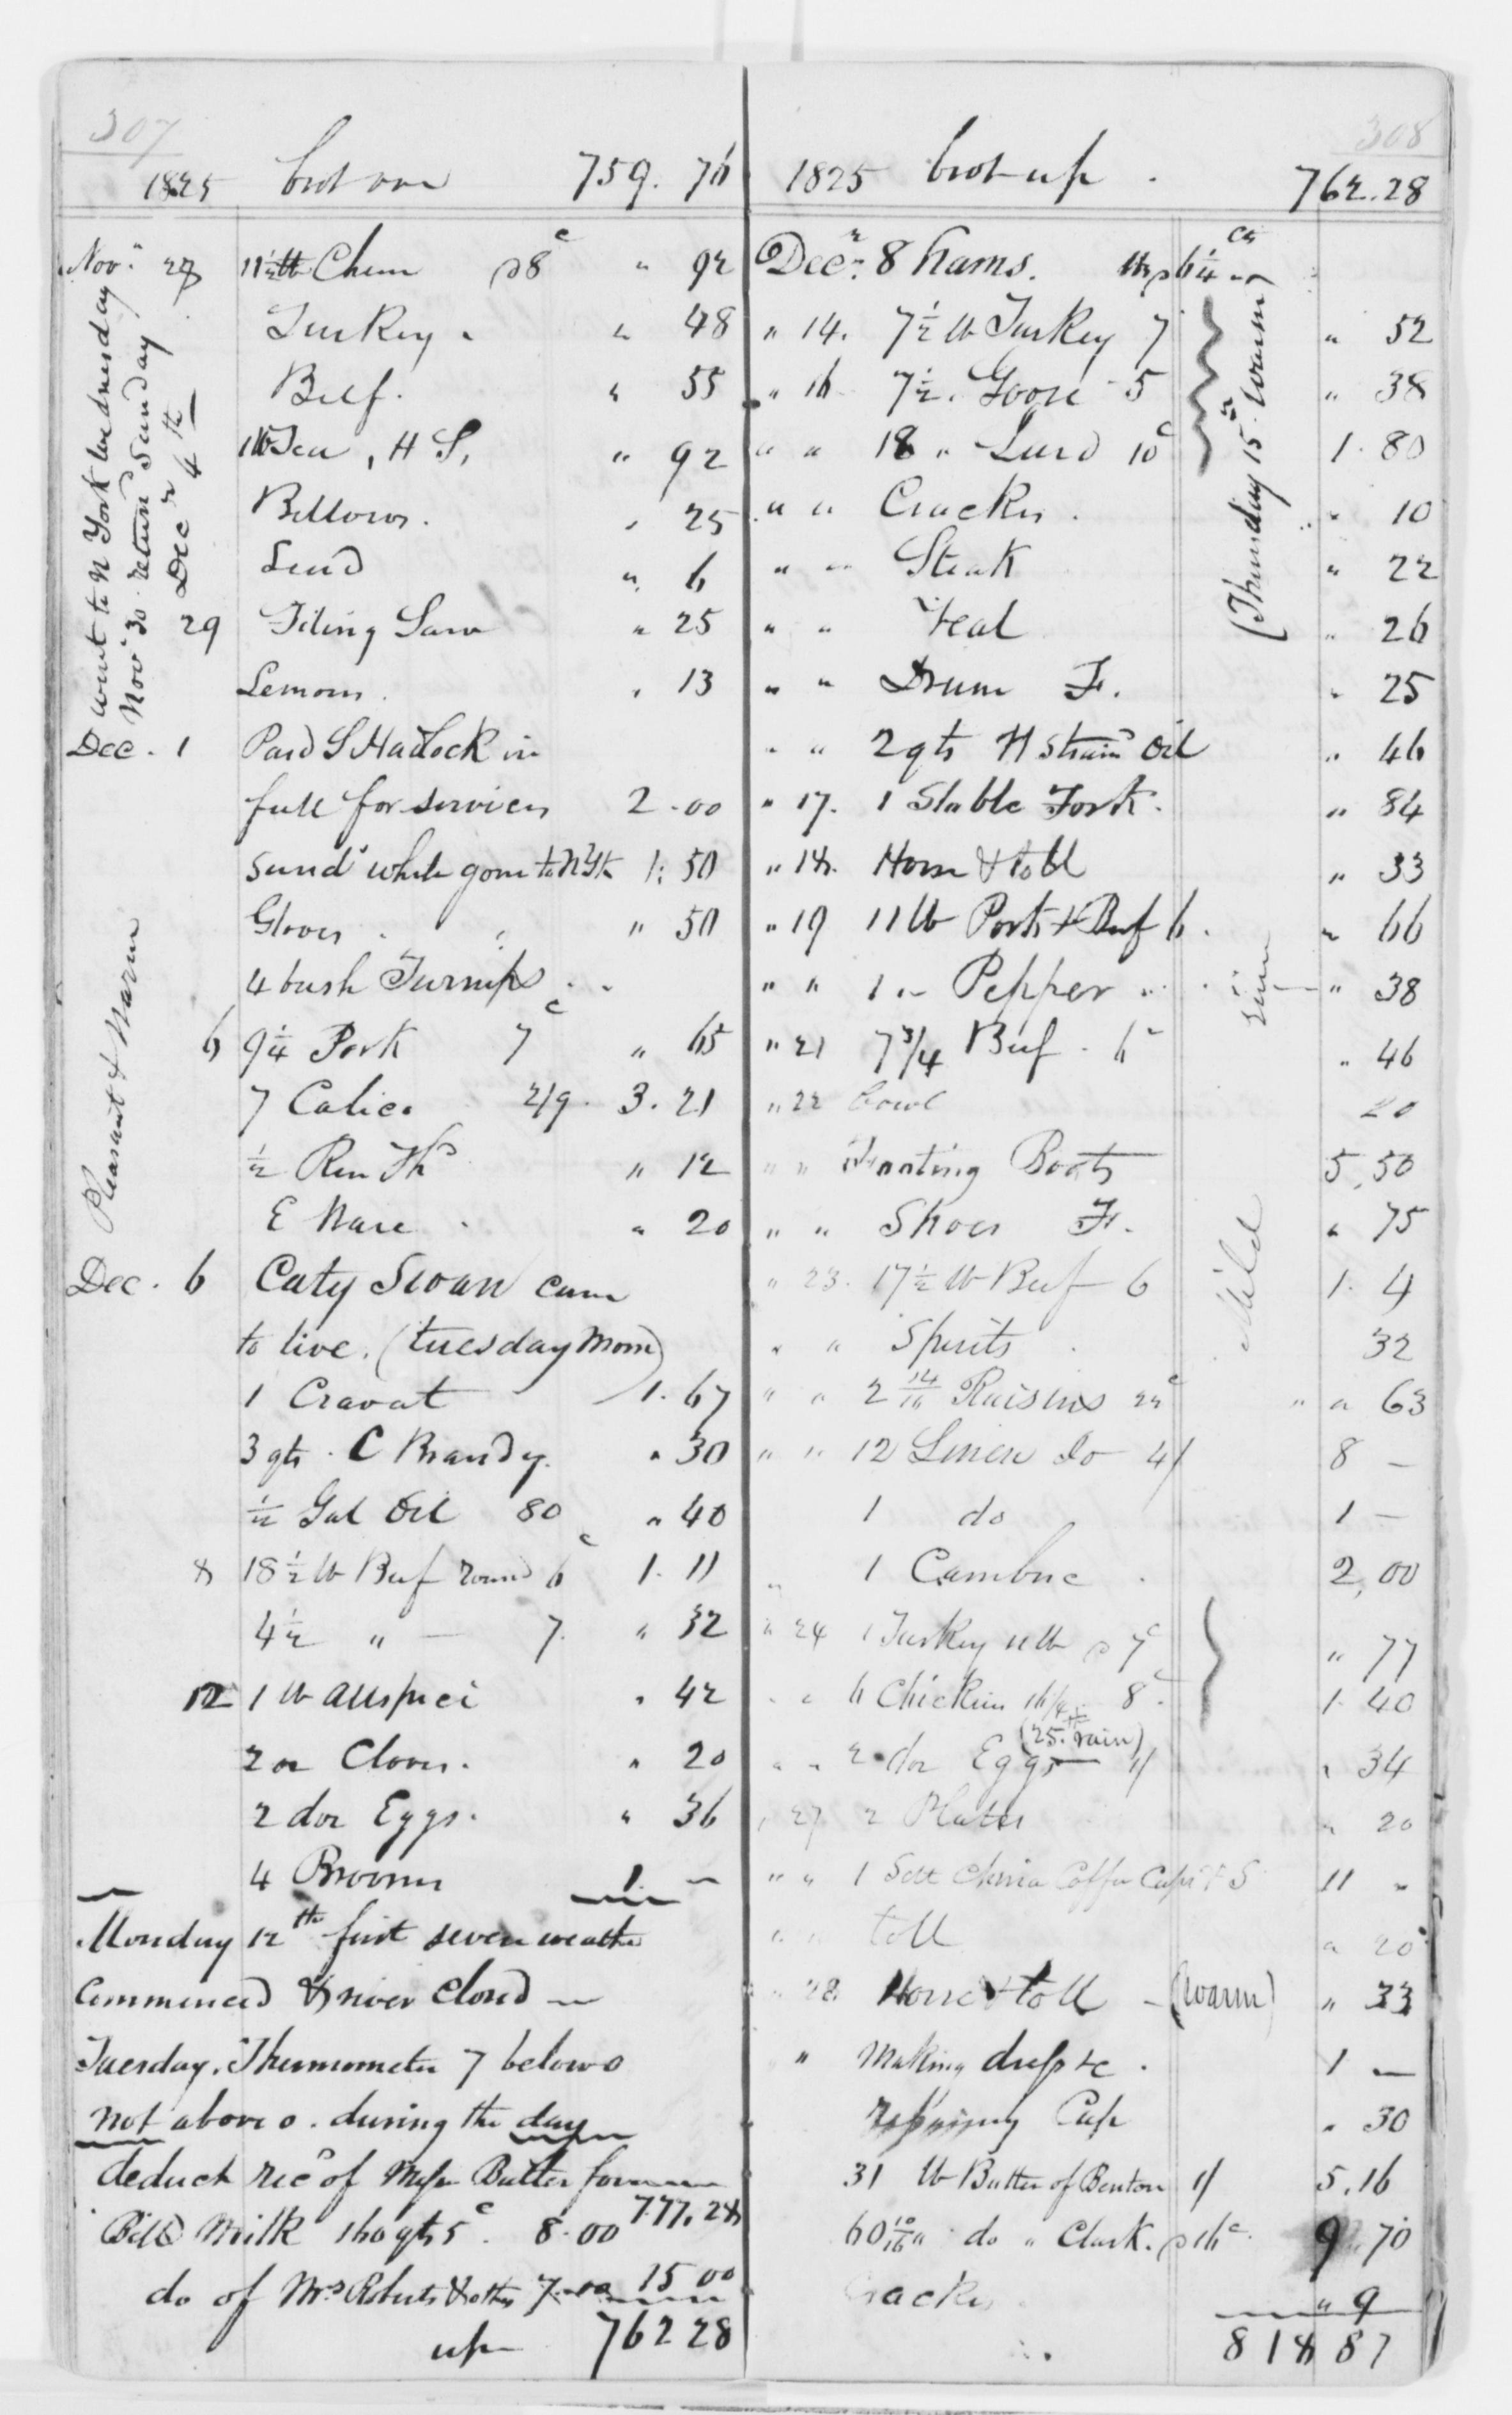 307
1825 brot over 759. 76
Nov. 28 11 1/2 lb Cheese 8c " 92
Turkey. " 48
Beef. " 55
1 lb Tea, H S, " 92
Bellows. " 25
Lead " 6
29 Filing Saw " 25
Lemons. " 13
went to N York Wednesday
Nov 30 return Sunday
Decr 4th
Dec. 1 Paid S Hadlock in
full for services 2.00
Sundr while gone to N Yk 1.50
Gloves. " 50
4 bush Turnips . .
6 9 1/4 Pork 7c " 65
7 Calico 2/9. 3.21
1/2 Thd " 12
E Ware. " 20
Pleasant & Warm
Dec. 6 Caty Swan came
to live. (tuesday Morn)
1 Cravat 1.67
3 qts. C Brandy. " 30
1/2 Gal Oil 80 " 40
8 18 1/2 lb Beef round 6c 1.11
4 1/2 " — 7. " 32
12 1 lb allspice " 42
2 oz Cloves. " 20
2 doz Eggs. " 36
4 Brooms 1. —
Monday 12th first severe weather
Commenced & river Closed —
Tuesday. Thermometer 7 below 0
not above 0. during the day
deduct recd of Butler for
Bill Milk 160 qts 5c. 8.00 777.28
do of Mrs Roberts & others 7.00 15 00
up 762 28
308
1825 brot up. 762.28
Decr. 8 hams. 6 1/4 cts
" 14. 7 1/2 lb Turkey 7 " 52
" 16 7 1/2. Goose 5 " 38
" " 18 " Lard 10c 1.80
" " Cracker. " 10
" " Steak " 22
" " Veal " 26
" " Drum F. " 25
(Thursday 15th. warm)
" " 2 qts W straind Oil " 46
" 17. 1 Stable Fork. " 84
" 18. Horse & toll " 33
" 19 11 lb Pork & Beef 6. " 66
" " 1 " Pepper " 38
" 21 7 3/4 Beef. 6c " 46
" 22 bowl 20
" " Footing Boots 5.50
" " Shoes F. " 75
Mild
" 23. 17 1/2 lb Beef 6 1. 4
" " Spirits 32
" " 2 14/16 Raisins 22c " 63
" " 12 Linen do 4/ 8 —
1 do 1 —
" 1 Cambric. 2,00
" 24 1 Turkey 11 lb 7c " 77
" " 6 Chickens 8c. 1.40
(25.th rain)
" " 2 doz Eggs 1/ " 34
" 27 2 Plates " 20
" " 1 Sett China Coffee Cups F S 11 "
" " toll " 20
" 28. Horse & toll — (warm) " 33
" Making dress &c. 1 —
repairing Cap " 30
31 lb Butter of Benton 1/ 5.16
60 10/16 " do " Clark. 16c. 9.70
Cracker " 9
818 87